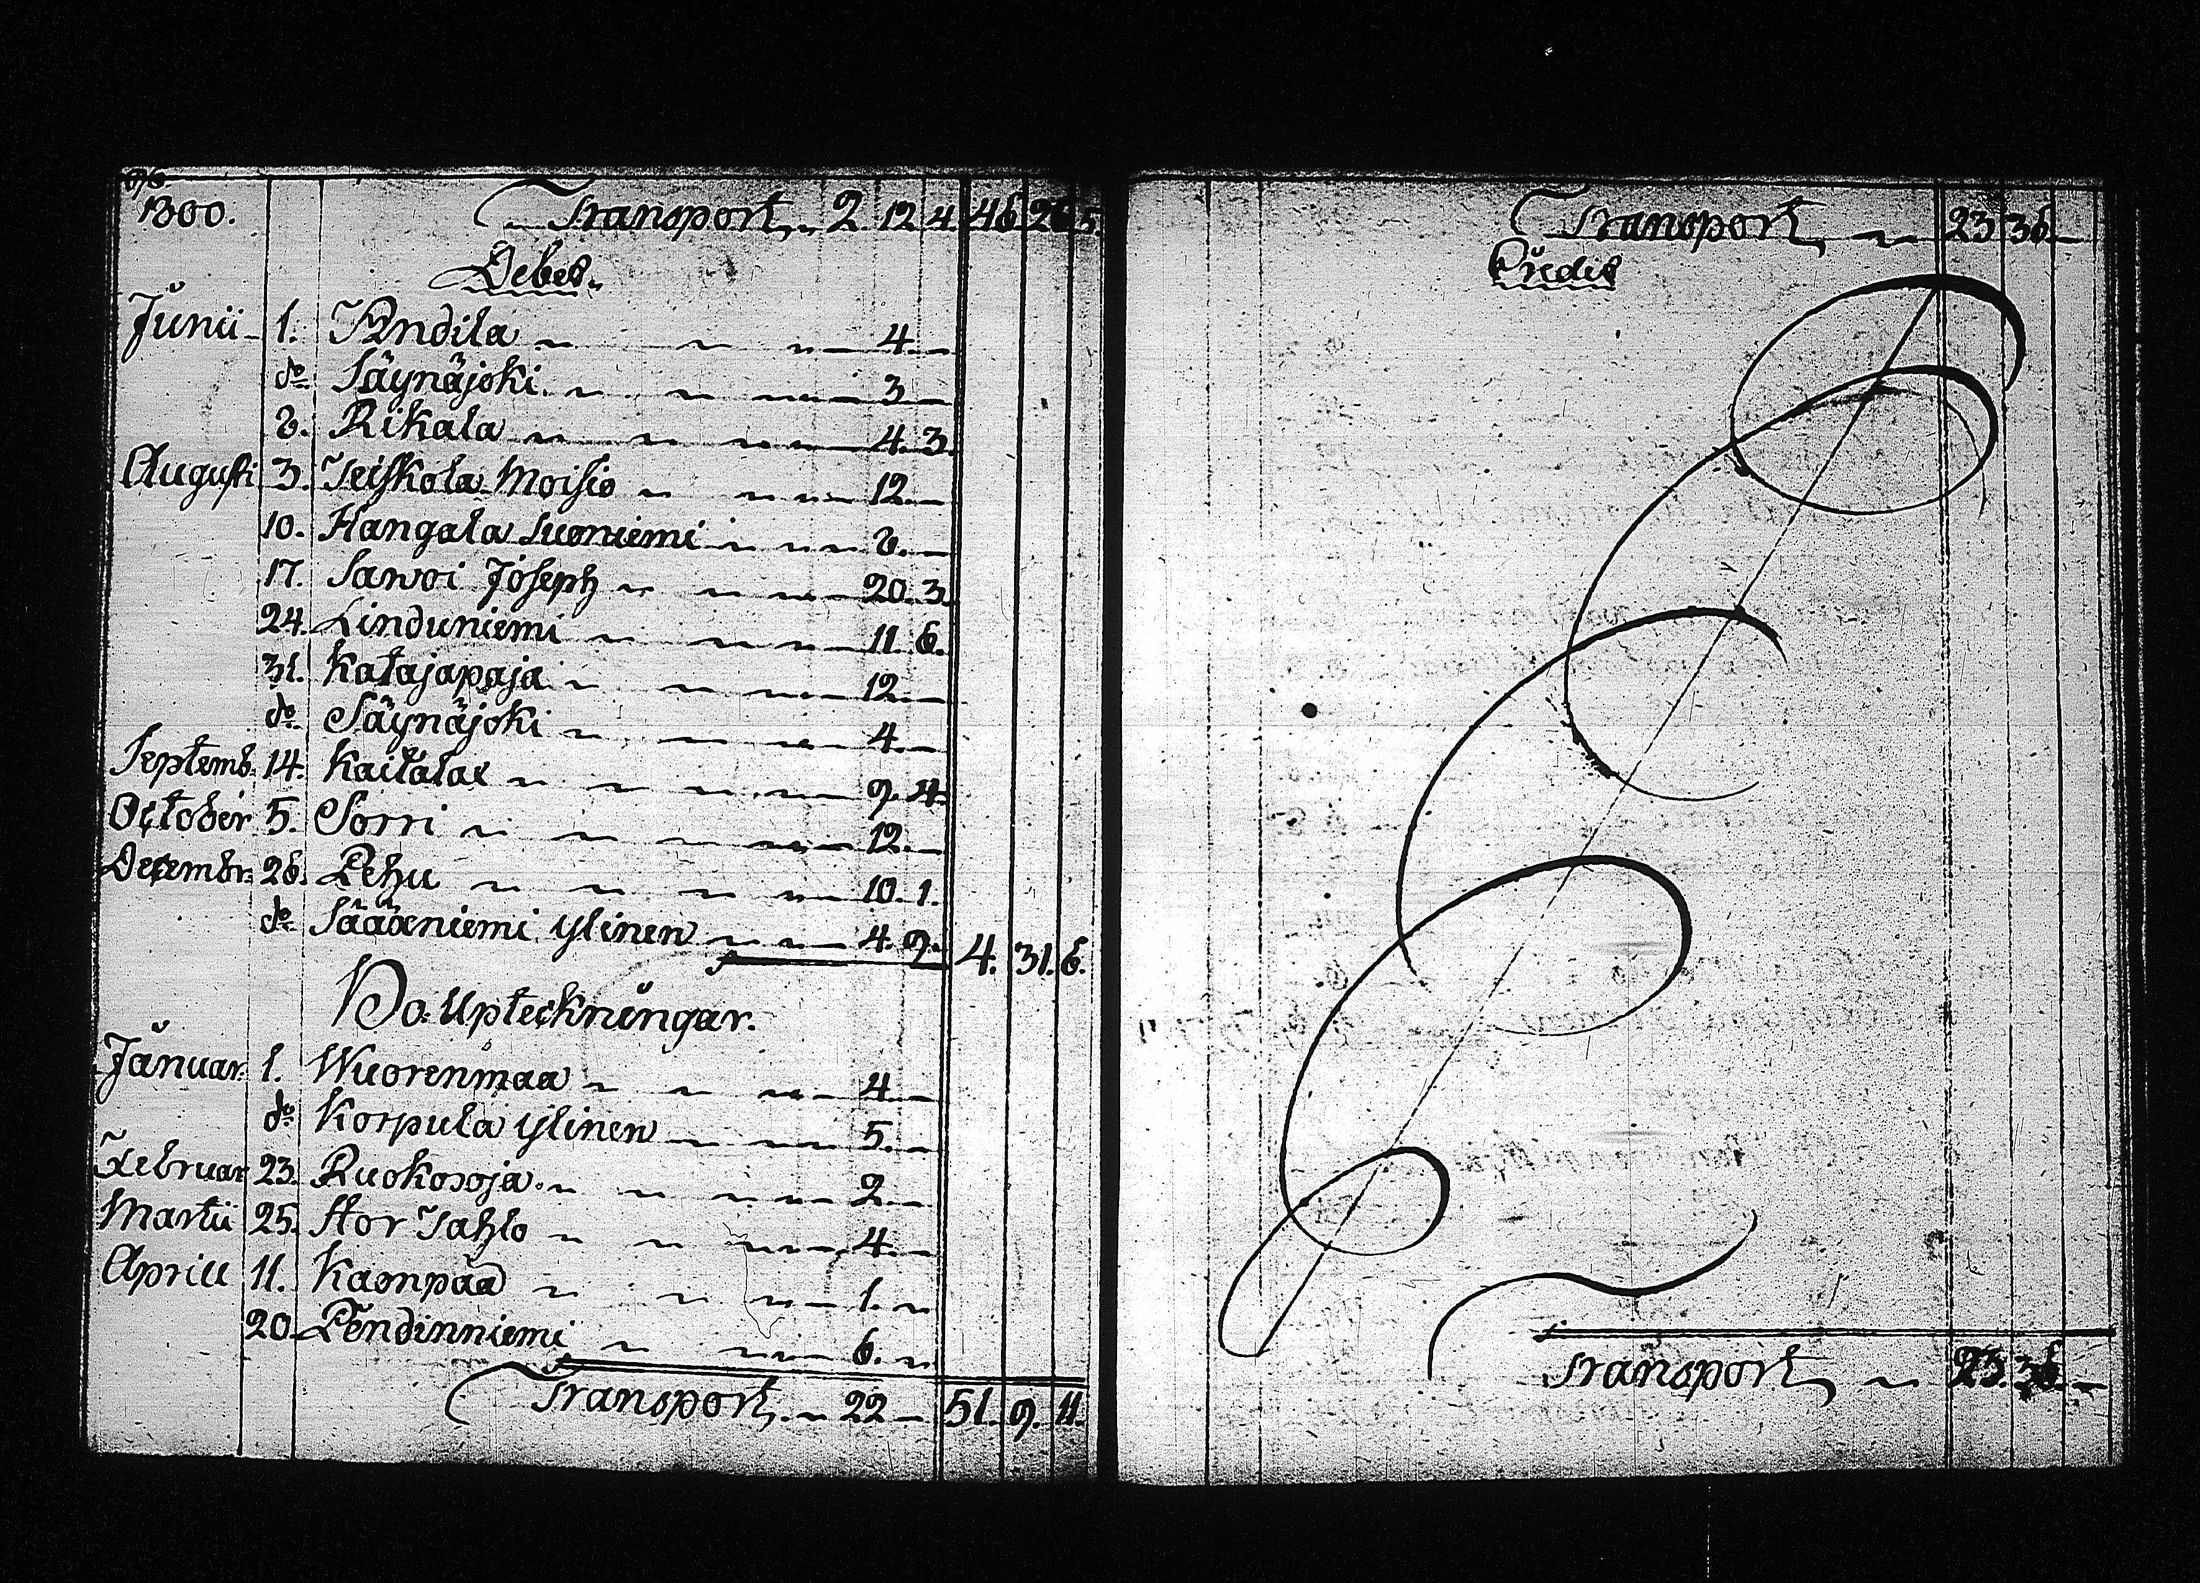 1800. Transport 2. 12. 4. 46. 26. 5.
Debet.
Junii 1. Andila 4.
do Säynäjoki 3
8. Rikala 4. 3.
Augusti 3. Teiskola Moisio 12.
10. Hangala Suoniemi 8.
17. Sawoi Joseph 20. 3.
24. Linduniemi 11. 6.
31. Katajapaja 12.
do Säynäjoki 4.
Septemb: 14. Kaitalax 9. 4.
October 5. Sorri 12.
Decembr: 26. Pehu 10. 1.
do Sääxniemi ylinen 4. 9. 4. 31. 6.
Ho: Upteckningar.
Januar: 1. Wuorenmaa 4
do Korpula ylinen 5.
Februar 23. Ruokosoja 2
Martii 25. Stor Jahlo 4.
Aprill 11. Kaonpää 1.
20. Pendinniemi 6.
Transport. 22 51. 9. 11.
Transport 23 36.
Credit
Transport 23. 36.